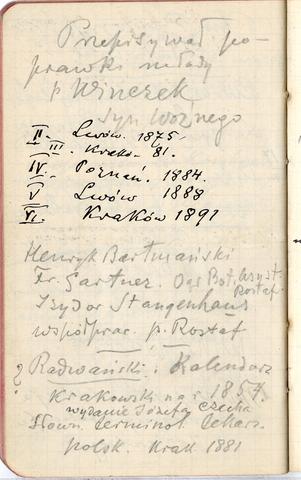 Przepisywał po-
prawki młody
p Winczek
syn woźnego
II - Lwów. 1875
III. Kraków 81.
IV. Poznań. 1884.
V Lwów 1888
VI. Kraków 1891
Henryk Bartmański
Fr. Gartner. Ogr Bot. Asyst. Rostaf
Izydor Stangenhaus
współprac. p. Rostaf
? Radwański: Kalendarz
Krakowski na r 1854.
wydanie Józefa Czecha
Słown. terminol. lekarz.
polsk. Krak 1881